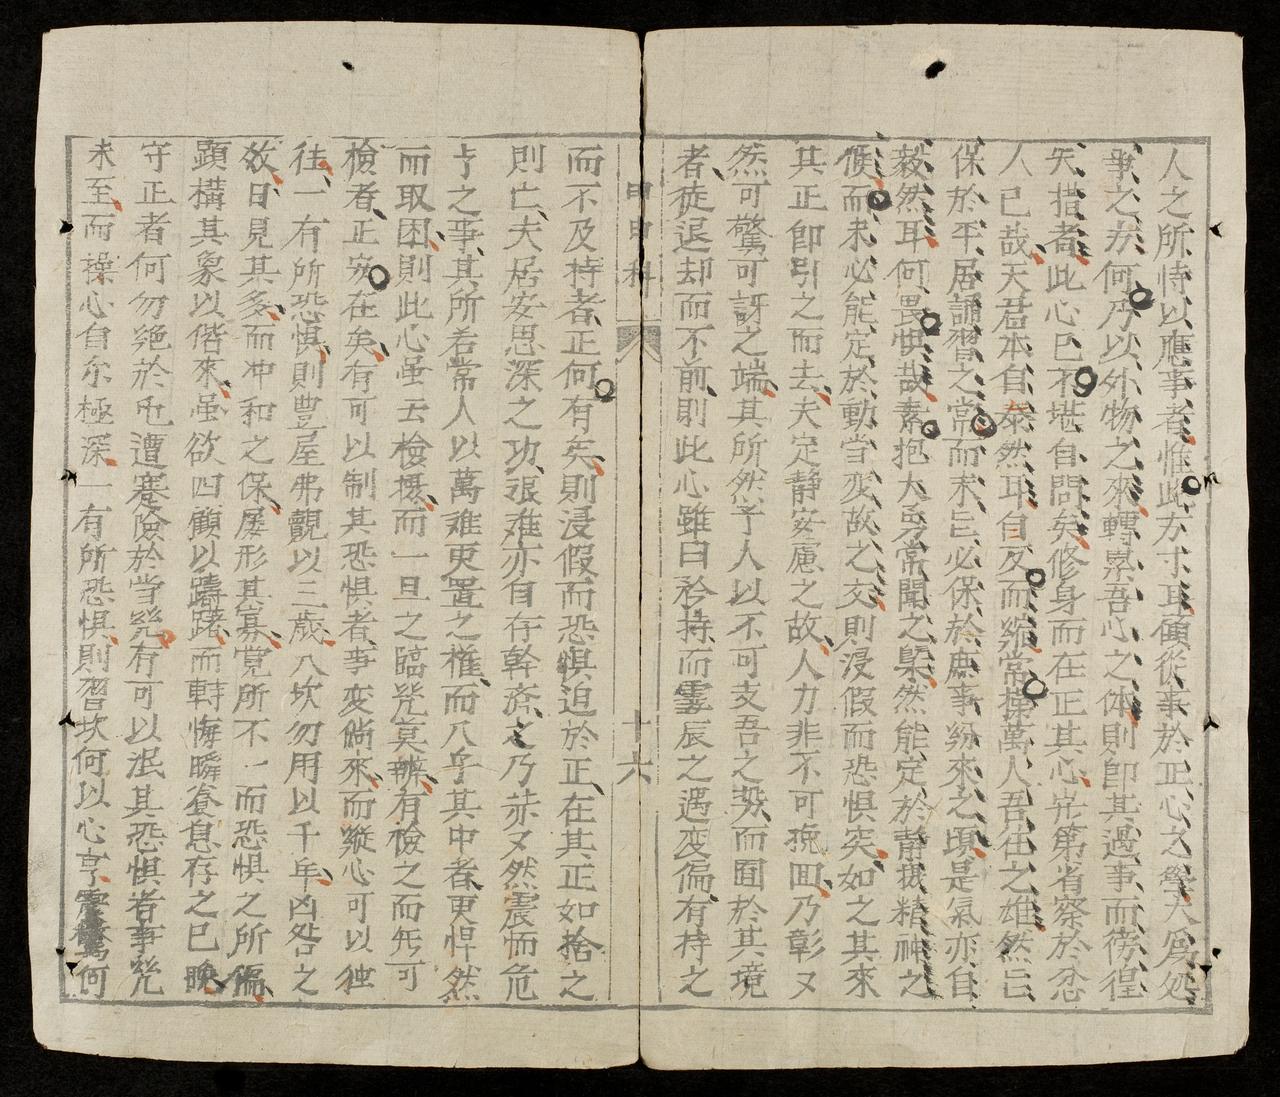 人之所恃以應事者惟此方寸耳傾從事於正心之學大爲処
事之方何乃以外物之來轉累吾心之体則即其過事而徬徨
失措者此心已不堪自問矣修身而在正其心岺第省察於忿
人已哉天君本自泰然耳自反而縱常操萬人吾往之雄然旨
保於平居誦習之常而未旨必保於庶事紛來之頃是氣亦自
毅然耳何畏惧哉素抱大勇常聞之槩然能定於静摄精神之
候而未必能定於動當变故之交則浸假而恐惧突如之其來
其正卽引之而去夫定静安慮之故人力非不可挽囬乃彰又
然可驚可訝之端其所然乎人以不可支吾之勢而囿於其境
者徒退却而不前則此心雖曰矜持而雲辰之遇变偏有持之
甲申科
十六
而不及持者正何有矣則浸假而恐惧迫於正在其正如捨之
則亡夫居安思深之功張难亦自存幹斎之乃恭又然震而危
乎之爭其所若常人以萬难更置之權而入乎其中者更悍然
而取困則此心虽云檢摄而一旦之臨兇莫辨有檢之而兂可
檢者正安在矣有可以制其恐惧者事变倘來而縱心可以独
往一有所恐惧則豊屋弗覿以三歲八坎勿用以千年凶咎之
效日見其多而冲和之保屡形其寡覚所不一而恐惧之所偏
顕構其象以偕來虽欲四顧以躊躇而轉悔瞬養息存之已晚
守正者何勿絶於屯遭蹇險於當幾有可以泯其恐惧者事幾
未至而操心自尔極深一有所恐惧則習坎何以心亨震驚何